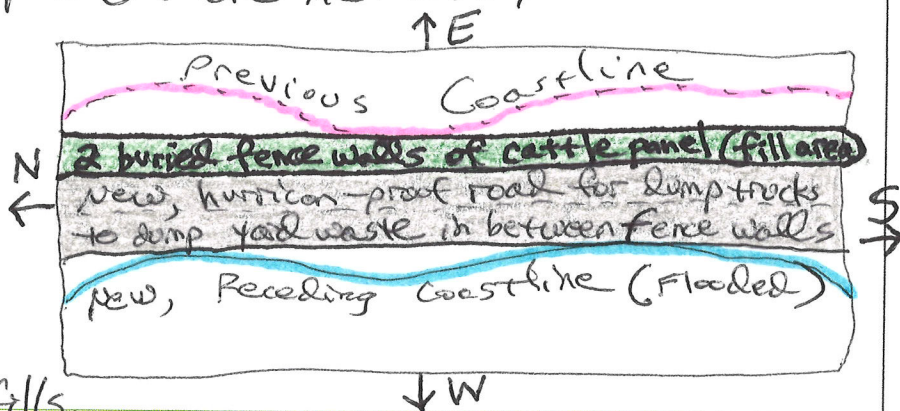 E
Previous Coastline
N
2 buried fence walls of cattle panel (fill area)
New, hurricon-proof road for dump trucks
S
to dump yard waste in between fence walls
New, Receding Coastline (Flooded)
W